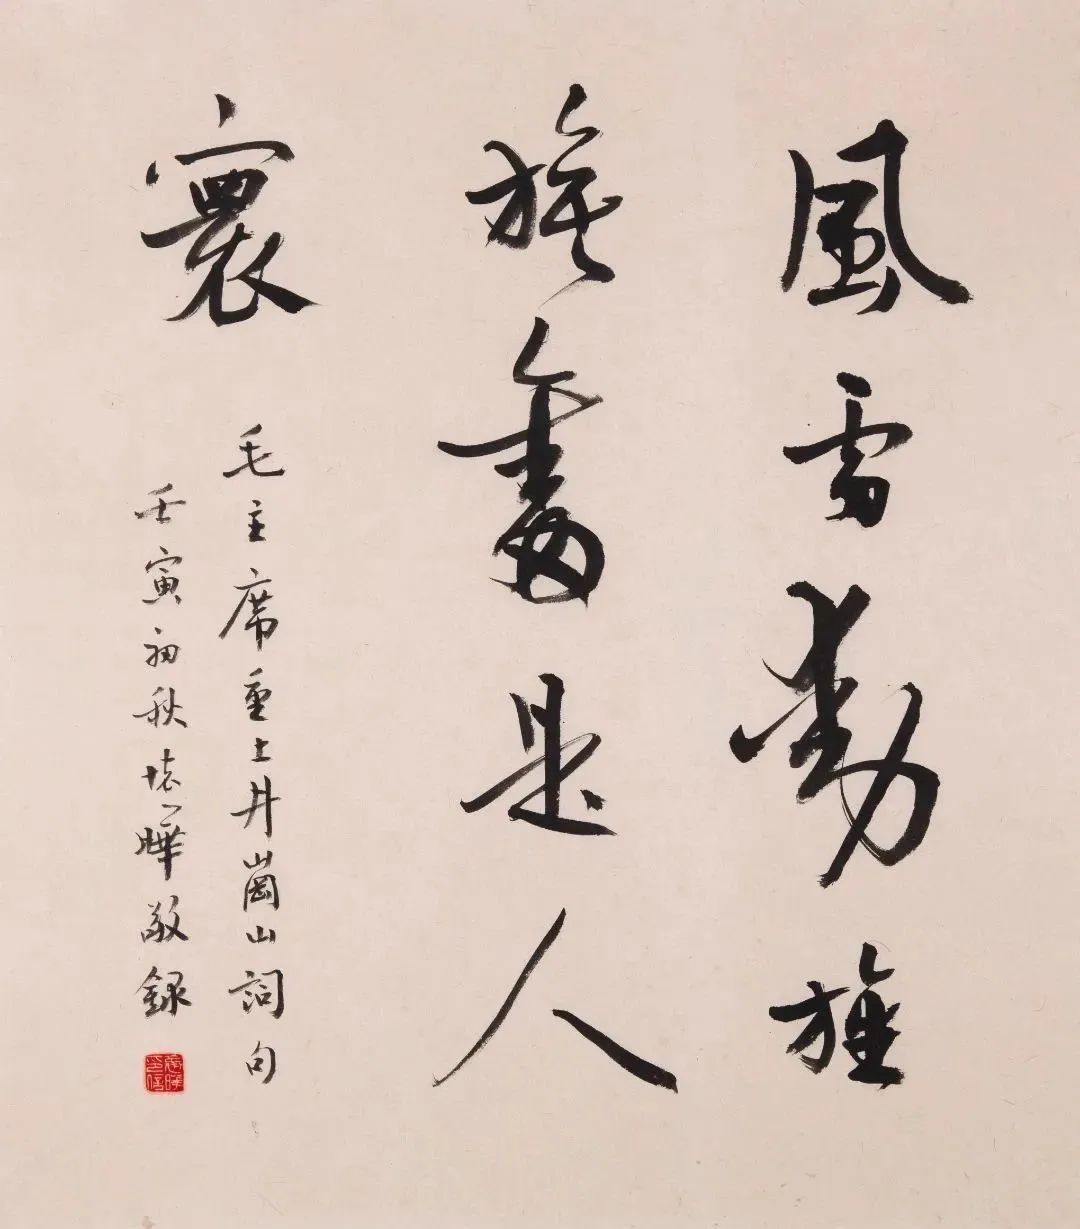 風雷動旌
旗奮是人
寰
毛主席重上井崗山詞句
壬寅初秋曄敬錄